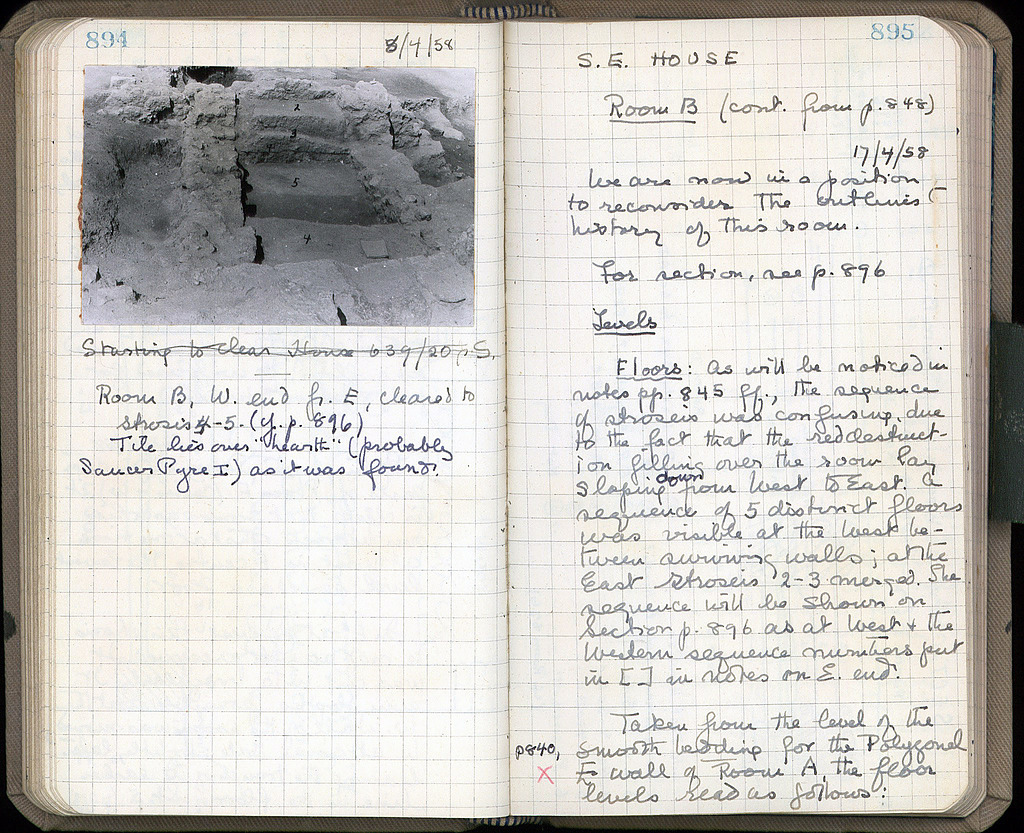 894
8/4/58
2
3
5
4
Starting to clear House 639/20, S.
Room B, W. end fr. E, cleared to
strosis 4-5. (cf. p. 896)
Tile lies over "hearth" (probably
Saucer Pyre I) as it was found.
895
S.E. HOUSE
Room B (cont. from p. 848)
17/4/58
We are now in a position
to reconsider the outlines
history of this room.
For section, see p. 896
Levels
Floors: As will be noticed in
notes pp. 845 ff., the sequence
of stroseis was confusing, due
to the fact that the red destruct-
ion filling over the room lay
sloping down from West to East. A
sequence of 5 distinct floors
was visible at the West be-
tween surviving walls; at the
East stroseis 2-3 merged. The
sequence will be shown on
Section p. 896 as at West & the
Western sequence numbers put
in [ ] in notes on E. end.
Taken from the level of the
p840, smooth bedding for the Polygonal
X E wall of Room A, the floor
levels read as follows: